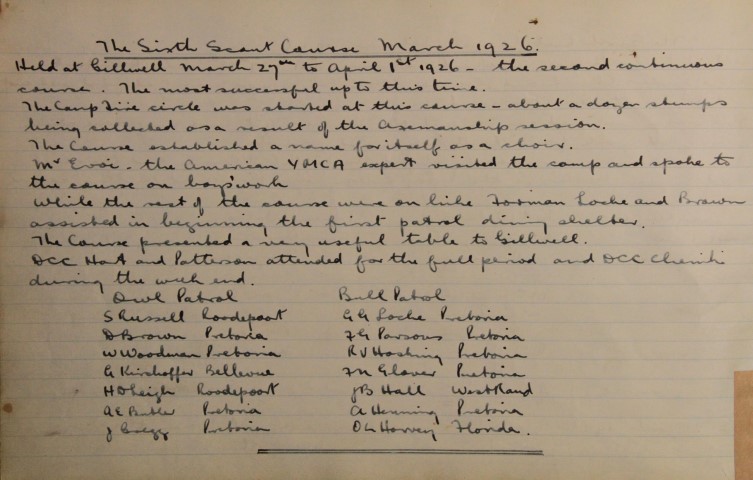 The Sixth Scout Course March 1926.
Held at Gillwell March 27th to April 1st 1926 - the second continuous
course. The most successful up to this time.
The Camp Fire circle was started at this course - about a dozen stumps
being collected as a result of the Axemanship session.
The Course established a name for itself as a choir.
Mr - the American YMCA expert visited the camp and spoke to
the course on boys' work
While the rest of the course were on hike Forman Locke and Brown
assisted in beginning the first patrol dining shelter.
The Course presented a very useful table to Gillwell.
DCC Hart and Patterson attended for the full period and DCC
during the week end.
Owl Patrol Bull Patrol
S Russell Roodepoort G G Locke Pretoria
D Brown Pretoria F G Parsons Pretoria
W Woodman Pretoria R V Hosking Pretoria
G Kirchoffer Bellevue F N Glover Pretoria
H D Leigh Roodepoort J B Hall West Rand
A E Butler Pretoria A Henning Pretoria
J Gregg Pretoria O L Harvey Florida.